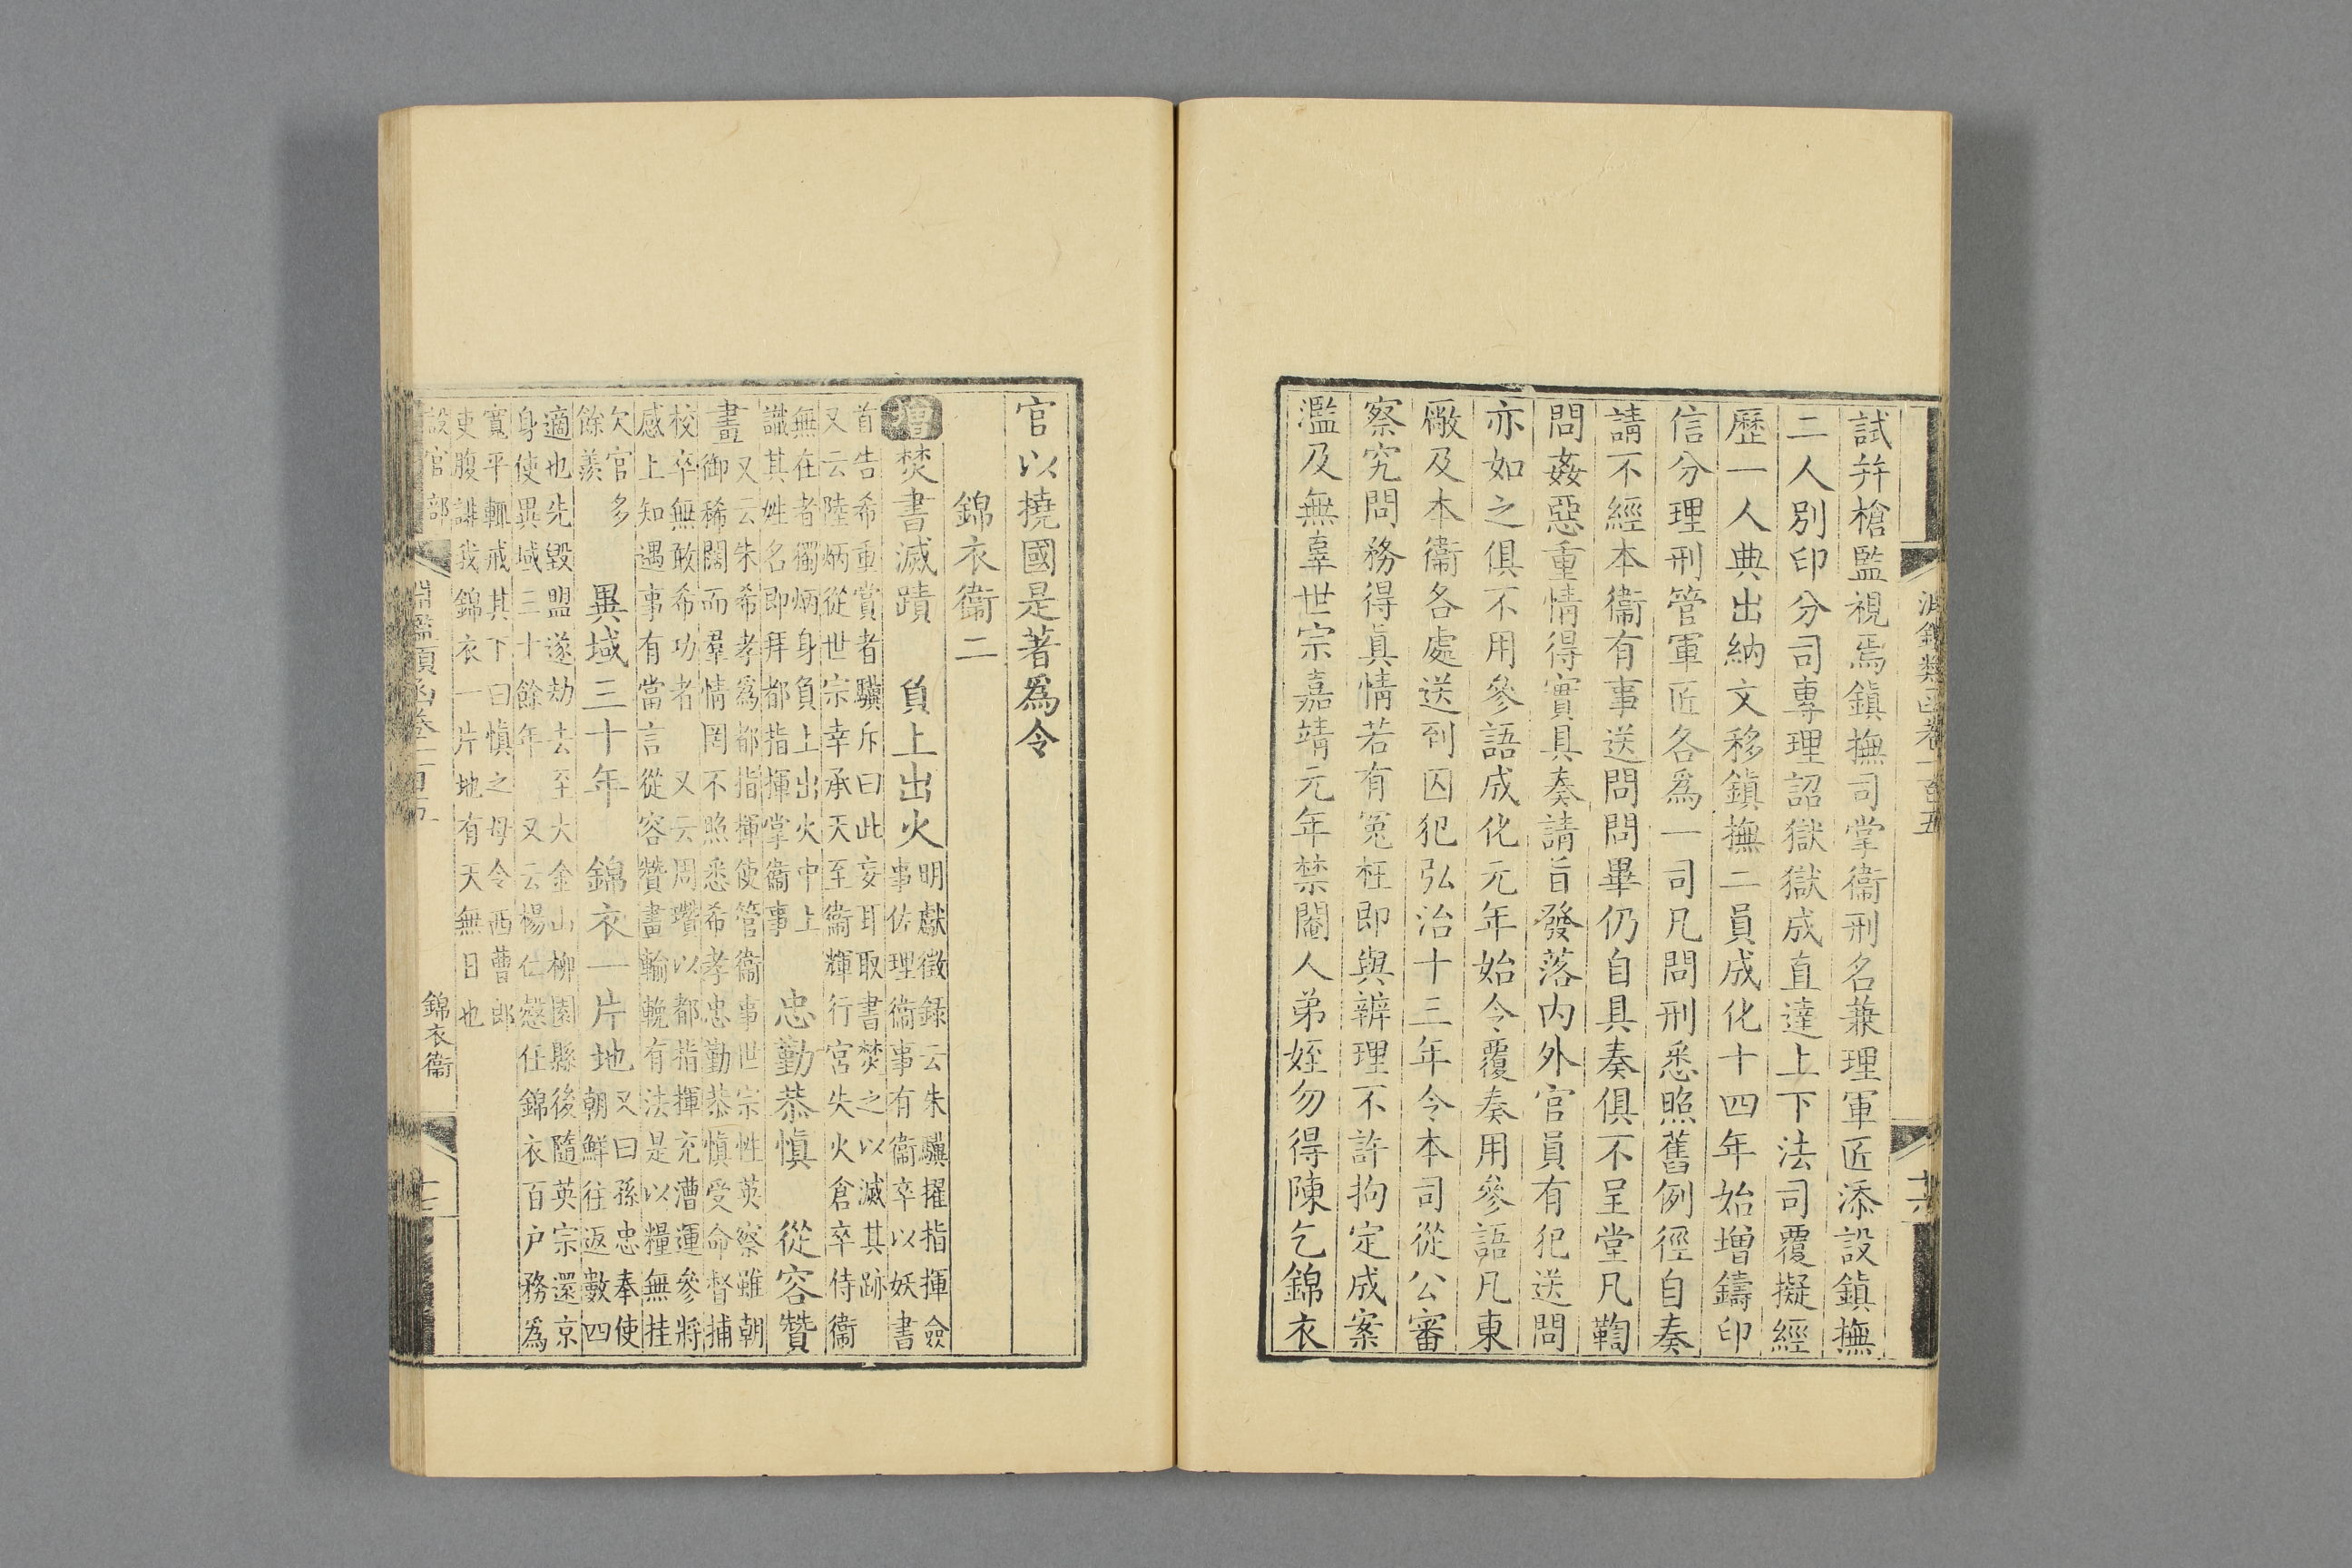 試弁槍監視焉鎮撫司掌衞刑名兼理軍匠添設鎮撫
二人別印分司專理詔獄獄成直達上下法司覆擬經
歷一人典出納文移鎮撫二員成化十四年始增鑄印
信分理刑管軍匠各爲一司凡問刑悉照舊例徑自奏
請不經本衞有事送問問畢仍自具奏俱不呈堂凡鞫
問姦惡重情得實具奏請旨發落内外官員有犯送問
亦如之俱不用參語成化元年始令覆奏用參語凡東
厰及本衞各處送到囚犯弘治十三年令本司從公審
察究問務得眞情若有寃枉即與辨理不許拘定成案
濫及無辜世宗嘉靖元年禁閹人弟姪勿得陳乞錦衣
官以撓國是著爲令
錦衣衞二
增焚書滅蹟 負上出火
明獻徵錄云朱驥擢指揮僉
事佐理衞事有衞卒以妖書
首告希重賞者驥斥曰此妄耳取書焚之以滅其跡
又云陸炳從世宗幸承天至衞輝行宮失火倉卒侍衞
無在者獨炳身負上出火中上
識其姓名即拜都指揮掌衞事
忠勤恭愼 從容贊
畫
又云朱希孝爲都指揮使管衞事世宗性英察雖朝
御稀闊而羣情罔不照悉希孝忠勤恭愼受命督捕
校卒無敢希功者 又云周瓚以都指揮充漕運參將
感上知遇事有當言從容贊畫輸輓有法是以糧無挂
欠官多
餘羨
異域三十年 錦衣一片地
又曰孫忠奉使
朝鮮往返數四
適也先毀盟遂劫去至大金山柳園縣後隨英宗還京
身使異域三十餘年 又云楊仕愨任錦衣百户務爲
寬平輒戒其下曰愼之母令西曹郎
吏腹誹我錦衣一片地有天無日也
設官部
淵鑑類函卷一百五
錦衣衞